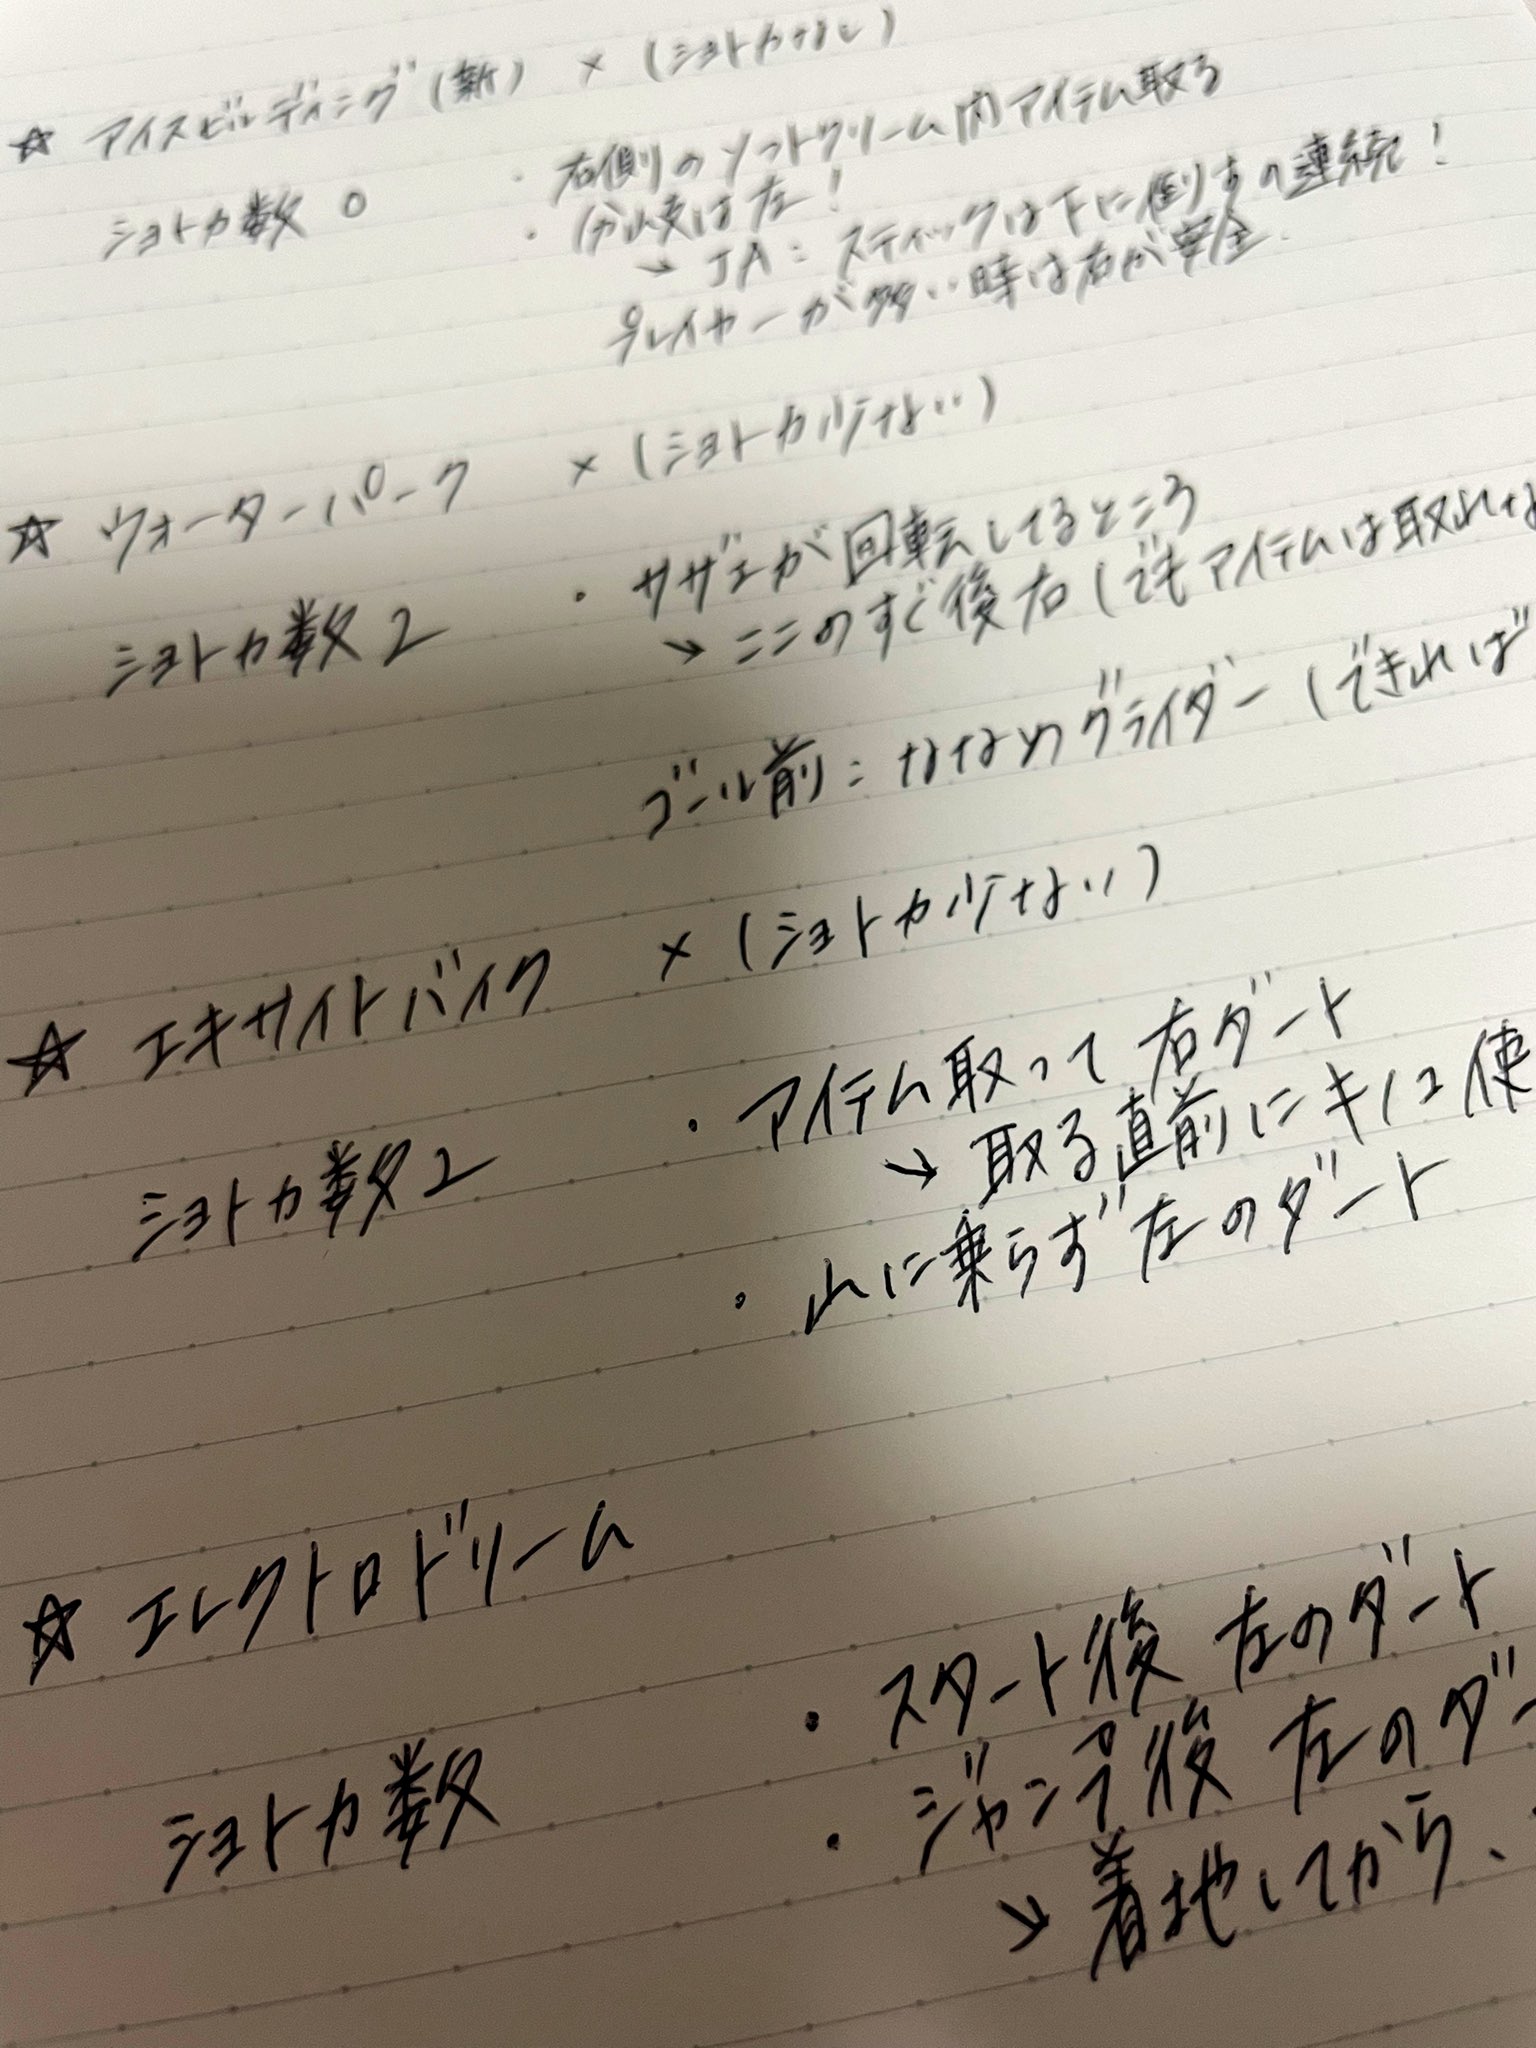 ☆ アイスビルディング(新) × (ショトカなし)
ショトカ数 0
・右側のソフトクリーム内アイテム取る
・分岐は左!
→ JA:スティックは下に倒すの連続!
プレイヤーが多い時は右が安全.
☆ ウォーターパーク × (ショトカ少ない)
ショトカ数 2
・サザエが回転してるところ
→ ここのすぐ後右(でもアイテムは取れな
ゴール前:ななめグライダー(できれば
☆ エキサイトバイク × (ショトカ少ない)
ショトカ数 2
・アイテム取って右ダート
→ 取る直前にキノコ使
・山に乗らず左のダート
☆ エレクトロドリーム
ショトカ数
・スタート後 左のダート
・ジャンプ後 左のダー
→ 着地してから、